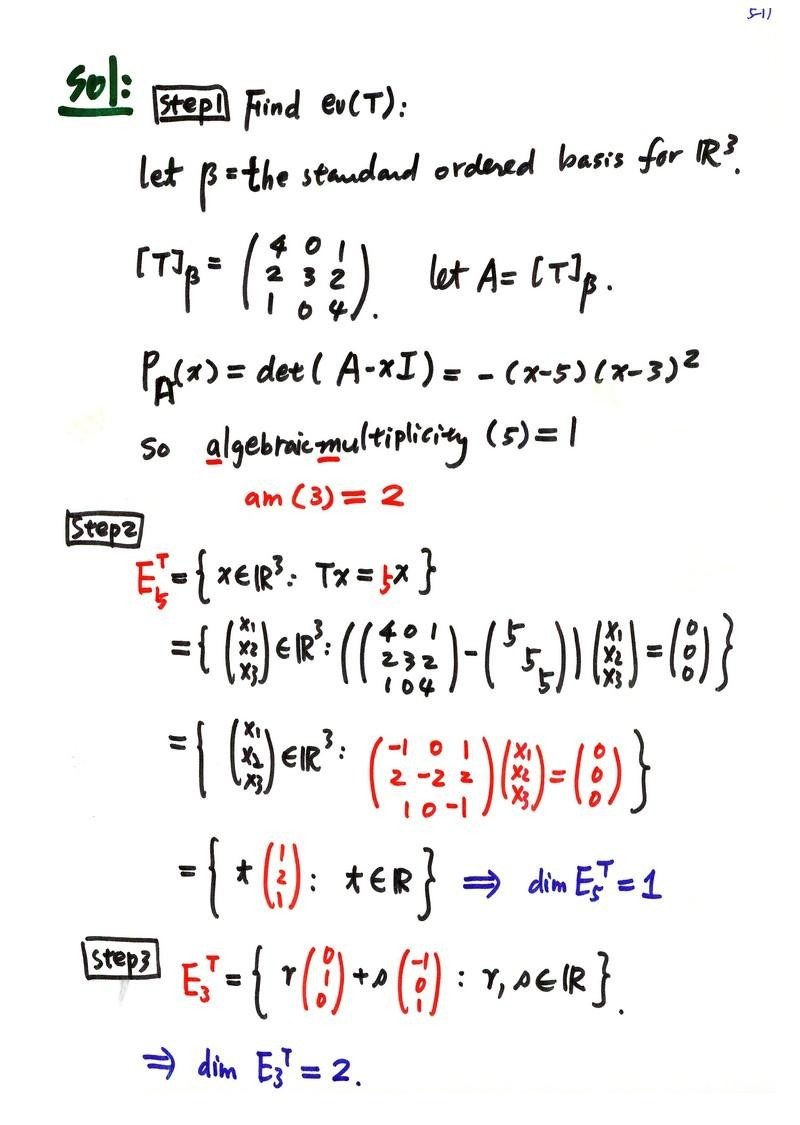 5-11
Sol: Step1 Find ev(T):
let β = the standard ordered basis for ℝ³.
[T]_β = (4 0 1; 2 3 2; 1 0 4). let A = [T]_β.
P_A(x) = det(A-xI) = -(x-5)(x-3)²
so algebraic multiplicity (5) = 1
am(3) = 2
Step2
E₅ᵀ = { x∈ℝ³: Tx = 5x }
= { (x₁; x₂; x₃) ∈ℝ³: ((4 0 1; 2 3 2; 1 0 4) - (5 5 5)) (x₁; x₂; x₃) = (0; 0; 0) }
= { (x₁; x₂; x₃) ∈ℝ³: (-1 0 1; 2 -2 2; 1 0 -1) (x₁; x₂; x₃) = (0; 0; 0) }
= { t (1; 2; 1): t∈ℝ } ⇒ dim E₅ᵀ = 1
Step3 E₃ᵀ = { r (0; 1; 0) + s (-1; 0; 1) : r, s∈ℝ }.
⇒ dim E₃ᵀ = 2.